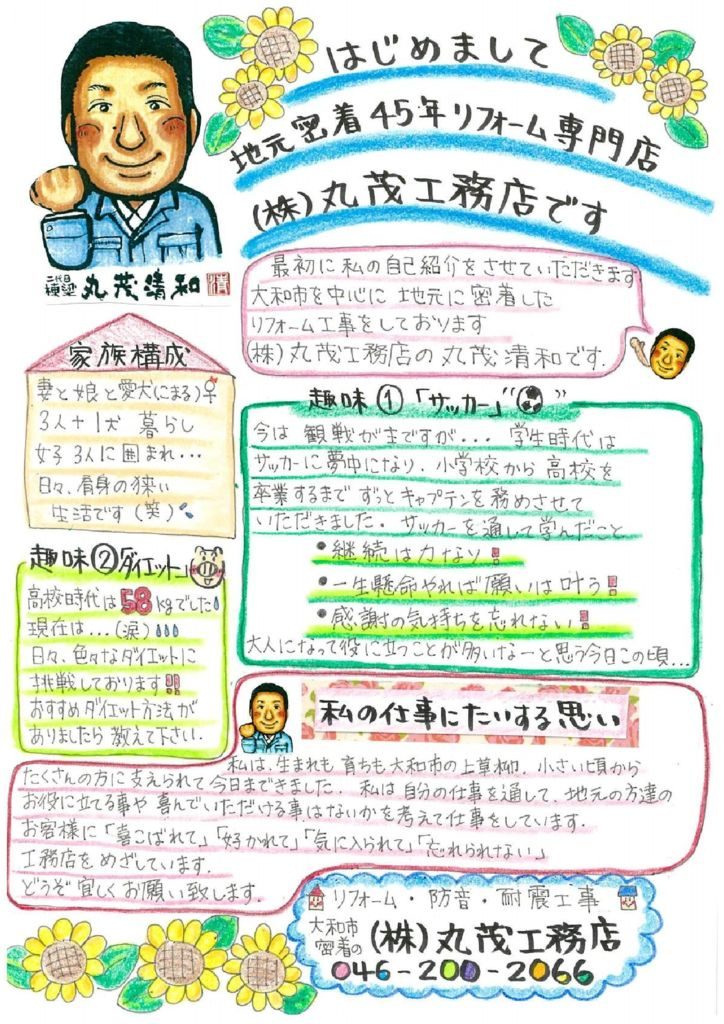 はじめまして
地元密着45年リフォーム専門店
(株)丸茂工務店です
二代目
棟梁 丸茂清和
最初に私の自己紹介をさせていただきます
大和市を中心に地元に密着した
リフォーム工事をしております
(株)丸茂工務店の丸茂清和です.
家族構成
妻と娘と愛犬(まる)♀
3人+1犬 暮らし
女子3人に囲まれ...
日々、肩身の狭い
生活です(笑)
趣味①「サッカー」
今は 観戦がまですが... 学生時代は
サッカーに夢中になり、小学校から高校を
卒業するまで ずっとキャプテンを務めさせて
いただきました. サッカーを通して学んだこと
•継続は力なり!
•一生懸命やれば願いは叶う!
•感謝の気持ちを忘れない!
大人になって役に立つことが多いなーと思う今日この頃...
趣味②「ダイエット」
高校時代は58kgでした
現在は...(涙)
日々、色々なダイエットに
挑戦しております!!
おすすめダイエット方法が
ありましたら教えて下さい.
私の仕事にたいする思い
私は、生まれも育ちも大和市の上草柳. 小さい頃から
たくさんの方に支えられて今日まできました. 私は自分の仕事を通して、地元の方達の
お役に立てる事や喜んでいただける事はないかを考えて仕事をしています.
お客様に「喜こばれて」「好かれて」「気に入られて」「忘れられない」
工務店をめざしています.
どうぞ宜しくお願い致します.
リフォーム・防音・耐震工事
大和市
密着の (株)丸茂工務店
046-200-2066